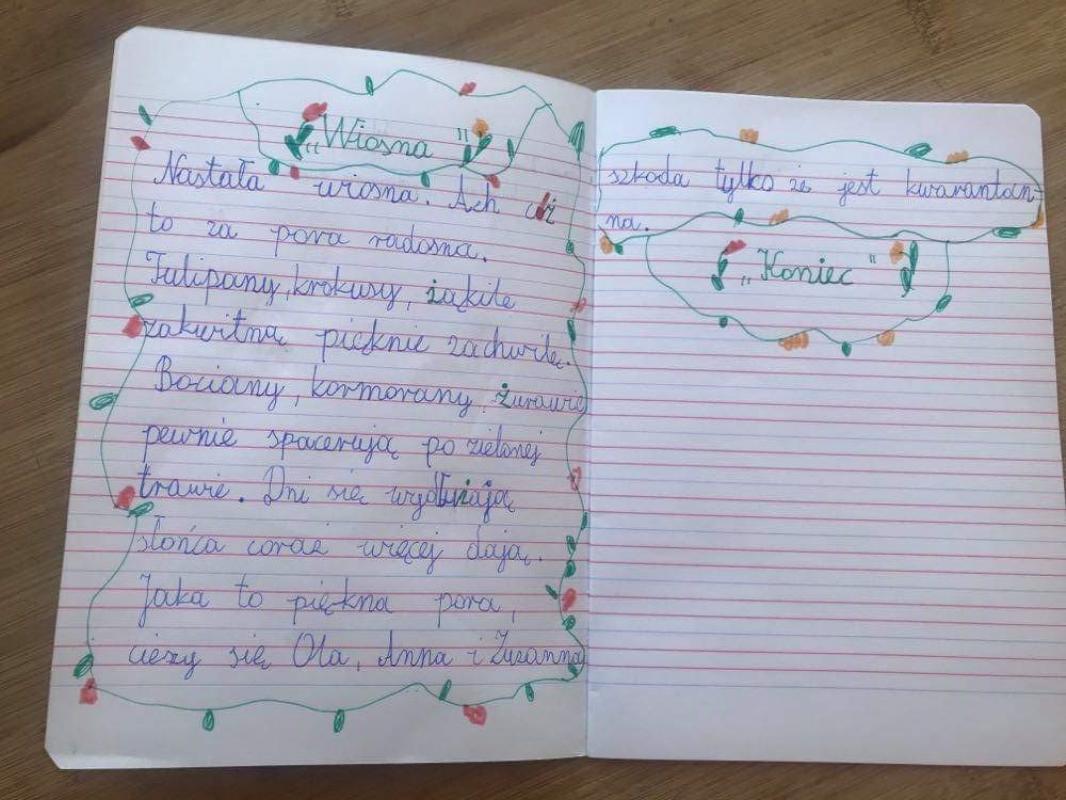 „Wiosna"
Nastała wiosna. Ach cóż
to za pora radosna.
Tulipany, krokusy, żąkile
zakwitną pięknie zachwilę.
Bociany, kormorany, żurawie
pewnie spacerują po zielonej
trawie. Dni się wydłużają
słońca coraz więcej dają.
Jaka to piękna pora,
cieszy się Ola, Anna i Zuzanna
szkoda tylko że jest kwarantan-
na.
„Koniec"